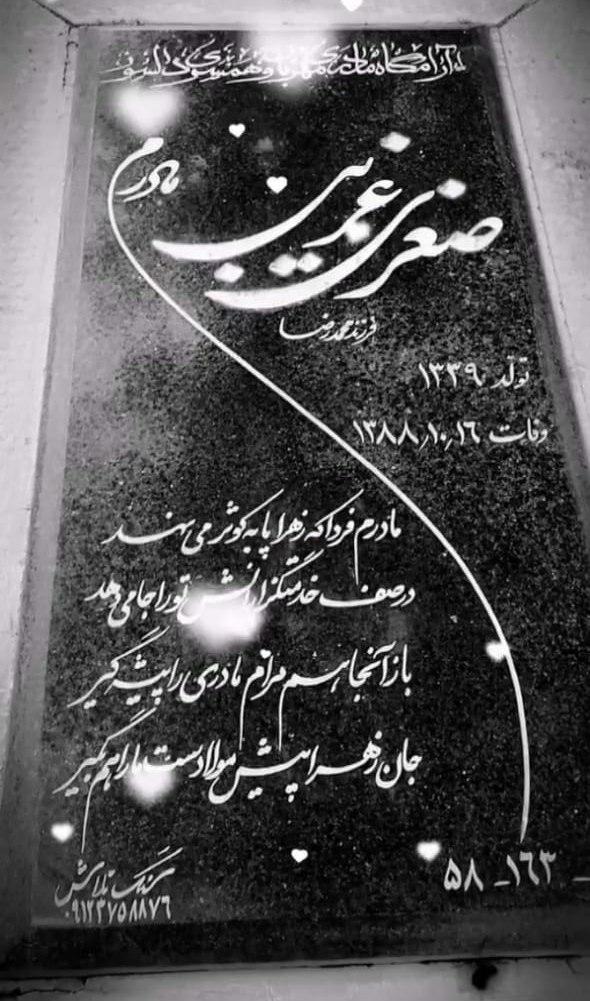 آرامگاه مادری مهربان و همسری دلسوز
مادرم
صغری غریب
فرزند محمدرضا
تولد ۱۳۳۹
وفات ۱۳۸۸٫۱۰٫۱۶
مادرم فردا که زهرا پا به کوثر می نهد
در صف خدمتگزارانش تو را جا می دهد
باز آنجا هم مرام مادری را پیشه گیر
جان زهرا پیش مولا دست ما را هم بگیر
۵۸ _ ۱۶۳ _
سنگ تلاش
۰۹۱۲۳۷۵۸۸۷۶